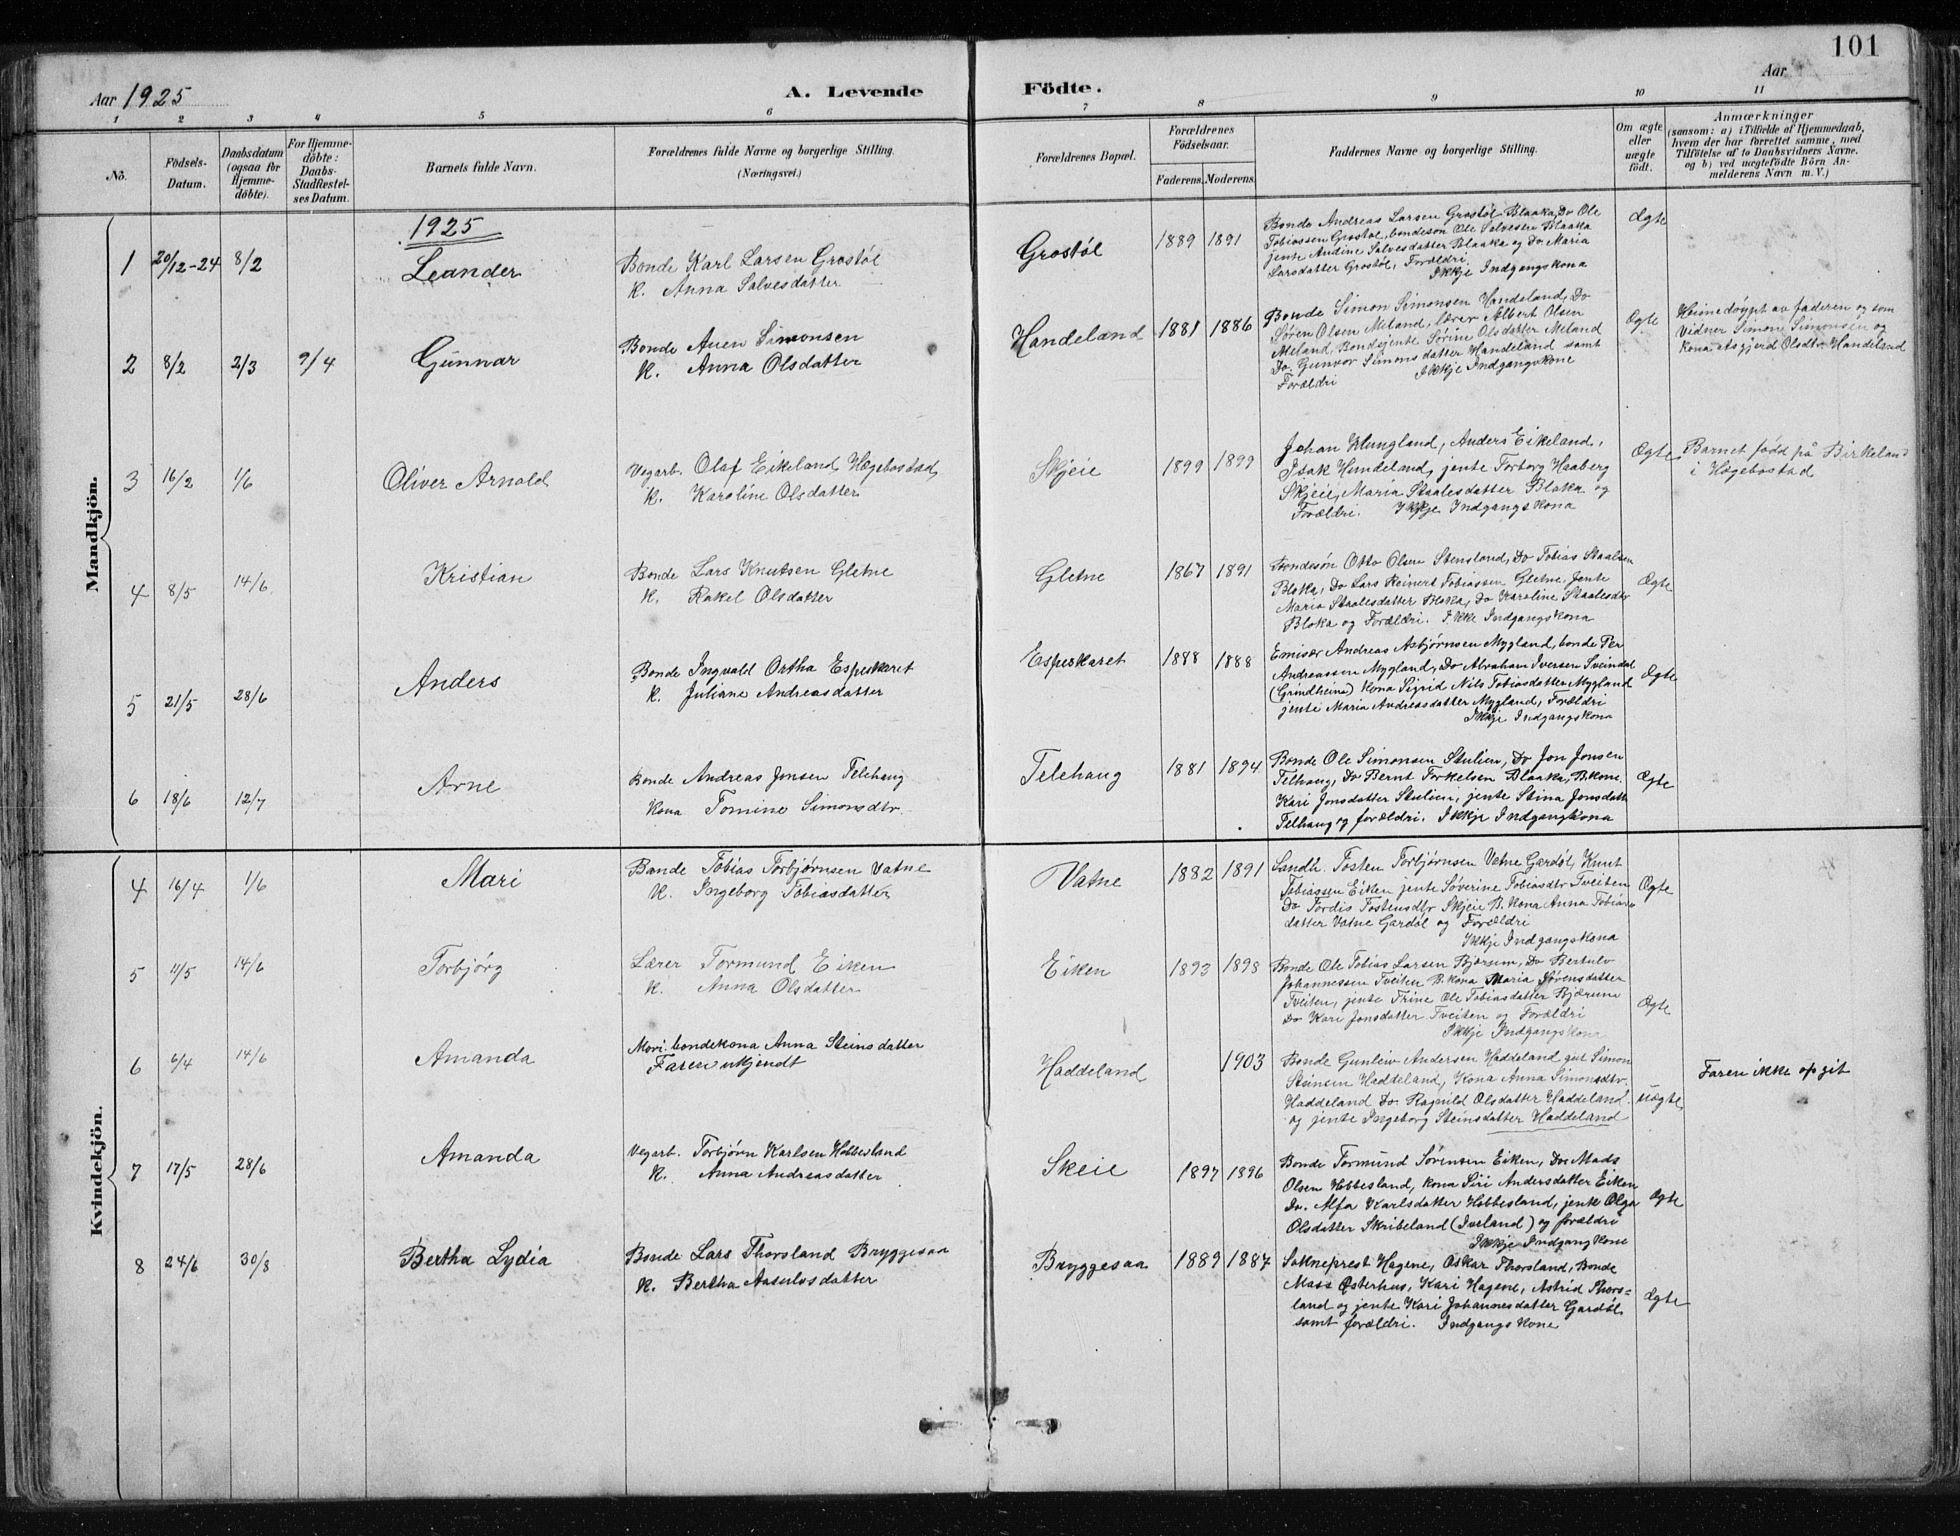 101
Aar 1925
A. Levende Födte.
Aar
1 2 3 4 5 6 7 8 9 10 11
No.
Födsels-
Datum.
Daabsdatum
(ogsaa for
Hjemme-
döbte).
For Hjemme-
döbte:
Daabs-
Stadfestel-
ses Datum.
Barnets fulde Navn.
Forældrenes fulde Navne og borgerlige Stilling.
(Næringsvei.)
Forældrenes Bopæl.
Forældrenes
Födselsaar.
Faderens. Moderens.
Faddernes Navne og borgerlige Stilling.
Om ægte
eller
uægte
födt.
Anmærkninger
(saasom: a) i Tilfælde af Hjemmedaab,
hvem der har forrettet samme, med
Tilföielse af to Daabsvidners Navne.
og b) ved uægtefödte Börn An-
melderens Navn m. V.)
Mandkjön.
1925
1 20/12-24 8/2
Leander
Bonde Karl Larsen Grostøl
K. Anna Salvesdatter
Grostøl
1889 1891
Bonde Andreas Larsen Grostøl Blaaka, Do Ole
Tobiassen Grostøl, bondeson Ole Salvesen Blaaka
jente Andine Salvesdatter Blaaka og Do Maria
Larsdatter Grostøl, Forældri
Ikkje Indgangskona
Ægte
2 8/2 2/3 9/4
Gunnar
Bonde Auen Simonsen
K. Anna Olsdatter
Handeland
1881 1886
Bonde Simon Simonsen Handeland, Do
Søren Olsen Meland, lærer Albert Olsen
Meland, Bondejente Sørine Olsdatter Meland
Do. Gunvor Simonsdatter Handeland samt
Forældri Ikkje Indgangskone
Ægte
Heimedøypt av faderen og som
Vidner Simon Simonsen og
Kona Olsdtr. Handeland
3 16/2 1/6
Oliver Arnold
Vegarb. Olaf Eikeland, Hægebostad
K. Karoline Olsdatter
Skjeie
1899 1899
Johan Anders Eikeland,
Isak Hundeland, jente Torborg Haaberg
Skjeie, Maria Staalesdatter Bloka og
Forældri. Ikkje Indgangskona
Ægte
Barnet fødd på Birkeland
i Hægebostad
4 8/5 14/6
Kristian
Bonde Lars Knutsen Gletne
K. Rakel Olsdatter
Gletne
1867 1891
Bondesøn Otto Olsen Stensland, Do Tobias Staalsen
Bloka, Do Lars Reinert Tobiassen Gletne. Jente
Maria Staalesdatter Bloka, Do Karoline Staalesdtr
Bloka og Forældri. Ikke Indgangskona
Ægte
5 21/5 28/6
Anders
Bonde Ingvald Ortha Espeskaret
K. Juliane Andreasdatter
Espeskaret
1888 1888
Emisær Andreas Asbjørnsen Mygland, bonde Per
Andreassen Mygland, Do Abraham Iversen Sveindal
(Grindheim) Kona Sigrid Nils Tobiasdatter Mygland
jente Maria Andreasdatter Mygland, Forældri
Ikkje Indgangskona
Ægte
6 18/6 12/7
Arne
Bonde Andreas Jonsen Telehaug
Kona Tomine Simonsdtr.
Telehaug
1881 1894
Bonde Ole Simonsen Stulien, Do Jon Jonsen
Telhaug, Do Bernt Torkelsen Blaaka, B.kone.
Kari Jonsdatter Stulien, jente Stina Jonsdatt
Telhaug og forældri. Ikkje Indgangkona
Ægte
Kvindekjön.
4 16/4 1/6
Mari
Bonde Tobias Torbjørnsen Vatne
K. Ingeborg Tobiasdatter
Vatne
1882 1891
Sandh. Tosten Torbjørnsen Vatne Gardøl, Knut
Tobiassen Eiken jente Søverine Tobiasdtr Tveiten
Do Tordis Tostensdtr Skjeie B. Kona Anna Tobias
datter Vatne Gardøl og Forældri
Ikkje Indgangskona
Ægte
5 11/5 14/6
Torbjørg
Lærer Tormund Eiken
K. Anna Olsdatter
Eiken
1893 1898
Bonde Ole Tobias Larsen Bjærum, Do Bertulv
Johannessen Tveiten B. Kona Maria Sørensdatter
Tveiten, jente Trine Ole Tobiasdatter Bjærum
Do Kari Jonsdatter Tveiten og Forældri
Ikkje Indgangskona
Ægte
6 6/4 14/6
Amanda
Mori: bondekona Anna Steinsdatter
Faren ukjendt
Haddeland
1903
Bonde Gunleiv Andersen Haddeland gut Simon
Steinsen Haddeland, Kona Anna Simonsdtr.
Haddeland Do. Ragnild Olsdatter Haddeland
og jente Ingeborg Steinsdatter Haddeland
uægte
Faren ikke opgit
7 17/5 28/6
Amanda
Vegarb. Torbjørn Karlsen Hobbesland
K. Anna Andreasdatter
Skeie
1897 1896
Bonde Tormund Sørensen Eiken, Do. Mads
Olsen Hobbesland, Kona Siri Andersdatter Eiken
Do. Alfa Karlsdatter Hobbesland, jente Olga
Olsdatter Skribeland (Iveland) og forældri
Ikkje Indgangkone
Ægte
8 24/6 30/8
Bertha Lydia
Bonde Lars Thorsland Bryggesaa
K. Bertha Aasulvsdatter
Bryggesaa
1889 1887
Sokneprest Hagene, Oskar Thorsland, Bonde
Mass Østerhus, Kari Hagene, Astrid Thors=
land og jente Kari Johannesdatter Gardøl
samt forældri. Indgangskone
Ægte